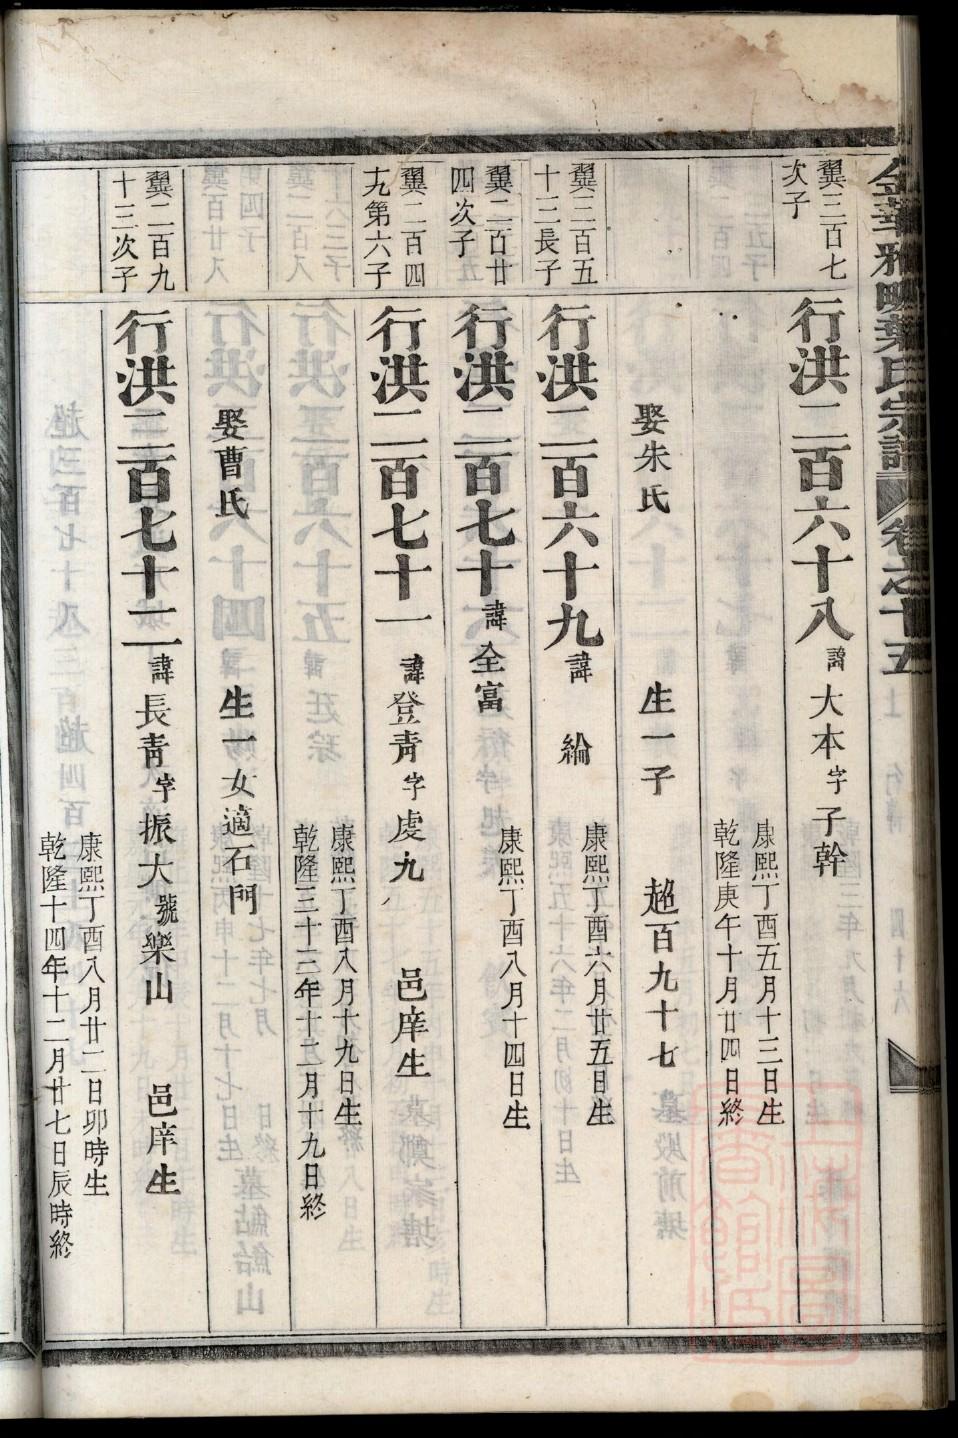 金華雅畈葉氏宗譜 卷之十五
翼三百七
次子
行洪二百六十八 諱大本字子幹
康熙丁酉五月十三日生
乾隆庚午十月廿四日終
娶朱氏 生一子 超百九十七
翼三百五
十三長子
行洪二百六十九 諱綸
康熙丁酉六月廿五日生
翼二百廿
四次子
行洪二百七十 諱全富
康熙丁酉八月十四日生
翼二百四
九第六子
行洪二百七十一 諱登青字虔九 邑庠生
康熙丁酉八月十九日生
乾隆三十三年十二月十九日終
娶曹氏 生一女適石門
翼二百九
十三次子
行洪二百七十二 諱長青字振大號樂山 邑庠生
康熙丁酉八月廿二日卯時生
乾隆十四年十二月廿七日辰時終